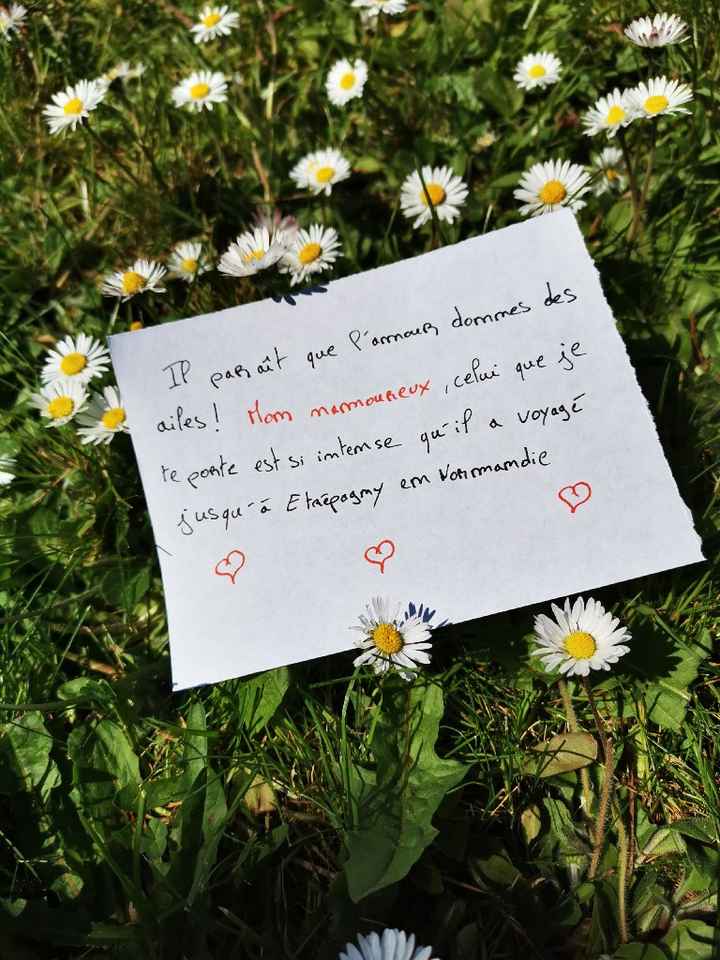 Il paraît que l'amour donnes des
ailes! Mon namoureux, celui que je
te porte est si intense qu'il a voyagé
jusqu'à Etrépagny en Normandie